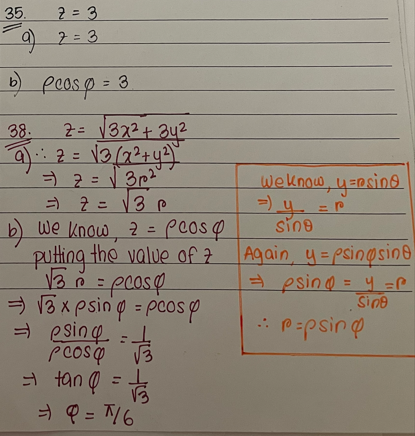 35. z = 3
a) z = 3
b) ρcosφ = 3
38. z = √(3x² + 3y²)
a) ∴ z = √(3(x²+y²))
⇒ z = √(3r²)
⇒ z = √3 r
b) We know, z = ρcosφ
putting the value of z
√3 r = ρcosφ
⇒ √3 × ρsinφ = ρcosφ
⇒ ρsinφ/ρcosφ = 1/√3
⇒ tanφ = 1/√3
⇒ φ = π/6
We know, y=rsinθ
⇒ y/sinθ = r
Again, y=ρsinφsinθ
⇒ ρsinφ = y/sinθ = r
∴ r=ρsinφ